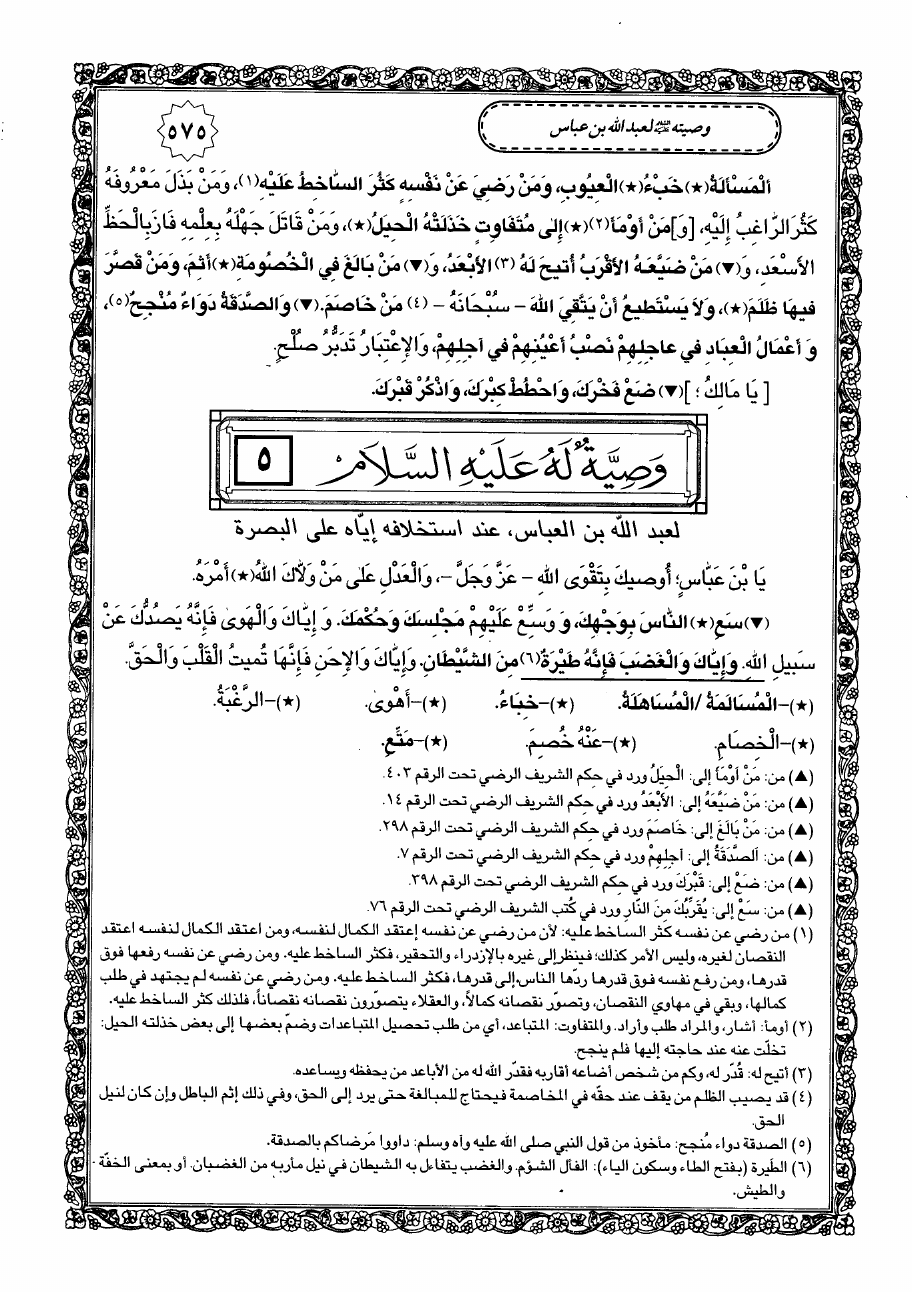 وصيته ﷺ لعبد الله بن عباس
٥٧٥
اَلْمَسْأَلَةُ(★) خَبْءُ(★) الْعِيُوبِ، وَمَنْ رَضِيَ عَنْ نَفْسِهِ كَثُرَ السَّاخِطُ عَلَيْهِ(١)، وَمَنْ بَذَلَ مَعْرُوفَهُ
كَثُرَ الرَّاغِبُ إِلَيْهِ، [وَ]مَنْ أَوْمَأَ(٢)(★) إِلىٰ مُتَفَاوِتٍ خَذَلَتْهُ الْحِيَلُ(★)، وَمَنْ قَاتَلَ جَهْلَهُ بِعِلْمِهِ فَازَ بِالْحَظِّ
الأَسْعَدِ، وَ(▼) مَنْ ضَيَّعَهُ الأَقْرَبُ أُتيحَ لَهُ (٣) الأَبْعَدُ، وَ(▼) مَنْ بَالَغَ فِي الْخُصُومَةِ(★) أَثِمَ، وَمَنْ قَصَّرَ
فيهَا ظُلِمَ(★)، وَلاَ يَسْتَطيعُ أَنْ يَتَّقِيَ اللهَ - سُبْحَانَهُ - (٤) مَنْ خَاصَمَ. (▼) وَالصَّدَقَةُ دَوَاءٌ مُنْجِحٌ(٥)،
وَ أَعْمَالُ الْعِبَادِ في عَاجِلِهِمْ نَصْبُ أَعْيُنِهِمْ في آجِلِهِمْ، وَالاِعْتِبَارُ تَدَبُّرُ صُلْحٍ.
[ يَا مَالِكُ ؛ ](▼) ضَعْ فَخْرَكَ، وَاحْطُطْ كِبْرَكَ، وَاذْكُرْ قَبْرَكَ.
وَصِيَّةٌ لَهُ عَلَيْهِ السَّلاَمُ
٥
لعبد الله بن العباس، عند استخلافه إيّاه على البصرة
يَا بْنَ عَبَّاسٍ؛ أُوصيكَ بِتَقْوَى اللهِ - عَزَّ وَجَلَّ -، وَالْعَدْلِ عَلىٰ مَنْ وَلاَّكَ اللهُ(★) أَمْرَهُ.
(▼) سَعِ(★) النَّاسَ بِوَجْهِكَ، وَ وَسِّعْ عَلَيْهِمْ مَجْلِسَكَ وَحُكْمَكَ. وَ إِيَّاكَ وَالْهَوىٰ فَإِنَّهُ يَصُدُّكَ عَنْ
سَبيلِ اللهِ. وَإِيَّاكَ وَالْغَضَبَ فَإِنَّهُ طَيْرَةٌ(٦) مِنَ الشَّيْطَانِ. وَإِيَّاكَ وَالإِحَنَ فَإِنَّهَا تُميتُ الْقَلْبَ وَالْحَقَّ.
(★)-الْمُسَالَمَةُ /الْمُسَاهَلَةُ. (★)-خِبَاءُ. (★)-أَهْوىٰ. (★)-الرَّغْبَةُ.
(★)-الْخِصَامِ. (★)-عَنْهُ خُصِمَ. (★)-مَتِّعِ.
(▲) من: مَنْ أَوْمَأَ إلى: الْحِيَلُ ورد في حكم الشريف الرضي تحت الرقم ٤٠٣.
(▲) من: مَنْ ضَيَّعَهُ إلى: الأَبْعَدُ ورد في حكم الشريف الرضي تحت الرقم ١٤.
(▲) من: مَنْ بَالَغَ إلى: خَاصَمَ ورد في حكم الشريف الرضي تحت الرقم ٢٩٨.
(▲) من: اَلصَّدَقَةُ إلى: آجِلِهِمْ ورد في حكم الشريف الرضي تحت الرقم ٧.
(▲) من: ضَعْ إلى: قَبْرَكَ ورد في حكم الشريف الرضي تحت الرقم ٣٩٨.
(▲) من: سَعْ إلى: يُقَرِّبُكَ مِنَ النَّارِ ورد في كُتب الشريف الرضي تحت الرقم ٧٦.
(١) من رضي عن نفسه كثر الساخط عليه: لأن من رضي عن نفسه إعتقد الكمال لنفسه، ومن اعتقد الكمال لنفسه اعتقد
النقصان لغيره، وليس الأمر كذلك؛ فينظر إلى غيره بالإزدراء والتحقير، فكثر الساخط عليه. ومن رضي عن نفسه رفعها فوق
قدرها، ومن رفع نفسه فوق قدرها ردّها الناس، إلى قدرها، فكثر الساخط عليه. ومن رضي عن نفسه لم يجتهد في طلب
كمالها، وبقي في مهاوي النقصان، وتصوّر نقصانه كمالاً، والعقلاء يتصوّرون نقصانه نقصاناً، فلذلك كثر الساخط عليه.
(٢) أومأ: أشار، والمراد طلب وأراد. والمتفاوت: المتباعد، أي من طلب تحصيل المتباعدات وضمّ بعضها إلى بعض خذلته الحيل:
تخلّت عنه عند حاجته إليها فلم ينجح.
(٣) أتيح له: قُدّر له، وكم من شخص أضاعه أقاربه فقدّر الله له من الأباعد من يحفظه ويساعده.
(٤) قد يصيب الظلم من يقف عند حقّه في المخاصمة فيحتاج للمبالغة حتى يرد إلى الحق، وفي ذلك إثم الباطل وإن كان لنيل
الحق.
(٥) الصدقة دواء مُنجح: مأخوذ من قول النبي صلى الله عليه وآه وسلم: داووا مَرضاكم بالصدقة.
(٦) الطَيرة (بفتح الطاء وسكون الياء): الفأل الشؤم. والغضب يتفاءل به الشيطان في نيل مأربه من الغضبان. أو بمعنى الخفّة
والطيش.